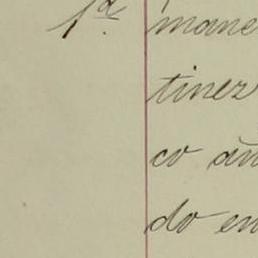 1ª mane
tinez
co añ
do en